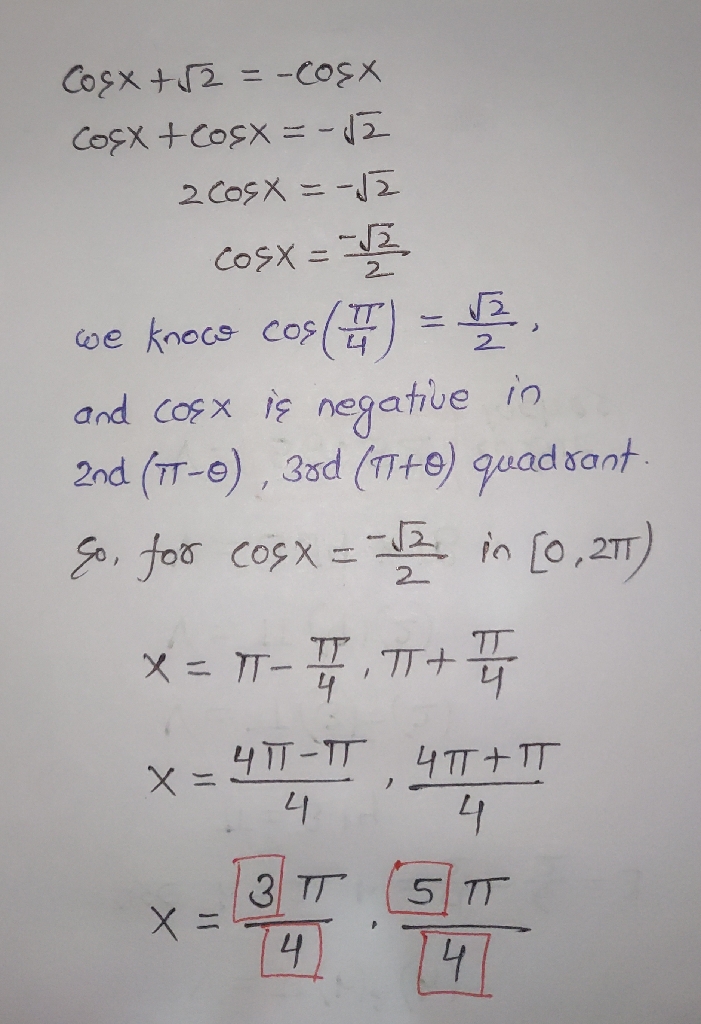 cosx + √2 = -cosx
cosx + cosx = -√2
2cosx = -√2
cosx = -√2/2
we know cos(π/4) = √2/2,
and cosx is negative in
2nd (π-θ), 3rd (π+θ) quadrant.
So, for cosx = -√2/2 in [0, 2π)
x = π - π/4, π + π/4
x = 4π-π/4, 4π+π/4
x = 3π/4, 5π/4